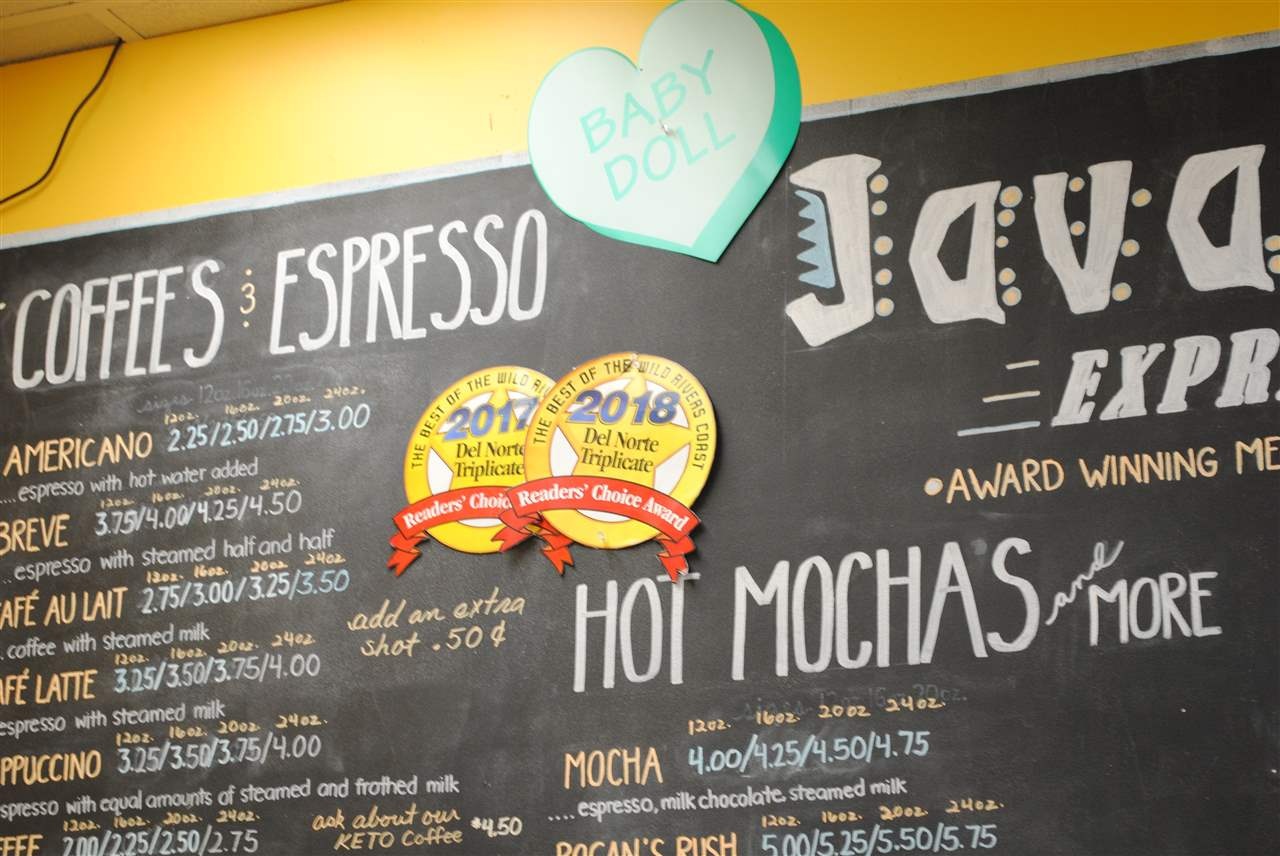 BABY
DOLL
COFFEES & ESPRESSO
12oz. 16oz. 20oz. 24oz.
AMERICANO 2.25/2.50/2.75/3.00
....espresso with hot water added
12oz. 16oz. 20oz. 24oz.
BREVE 3.75/4.00/4.25/4.50
...espresso with steamed half and half
12oz. 16oz. 20oz 24oz
CAFÉ AU LAIT 2.75/3.00/3.25/3.50
. coffee with steamed milk
12oz. 16oz. 20oz. 24oz.
AFÉ LATTE 3.25/3.50/3.75/4.00
espresso with steamed milk
12oz. 16oz. 20oz. 24oz.
PPUCCINO 3.25/3.50/3.75/4.00
spresso with equal amounts of steamed and frothed milk
12oz. 16oz. 20oz. 24oz.
FFEE 2.00/2.25/2.50/2.75
add an extra
shot .50¢
ask about our
KETO Coffee $4.50
THE BEST OF THE WILD RIV
2017
Del Norte
Triplicate
Readers' Choic
THE BEST OF THE WILD RIVERS COAST
2018
Del Norte
Triplicate
Readers' Choice Award
Java
EXPR
•AWARD WINNING ME
HOT MOCHAS and MORE
sizes 12oz 16oz 20oz.
12oz. 16oz. 20oz 24oz.
MOCHA 4.00/4.25/4.50/4.75
....espresso, milk chocolate, steamed milk
12oz. 16oz. 20oz. 24oz.
ROGAN'S RUSH 5.00/5.25/5.50/5.75